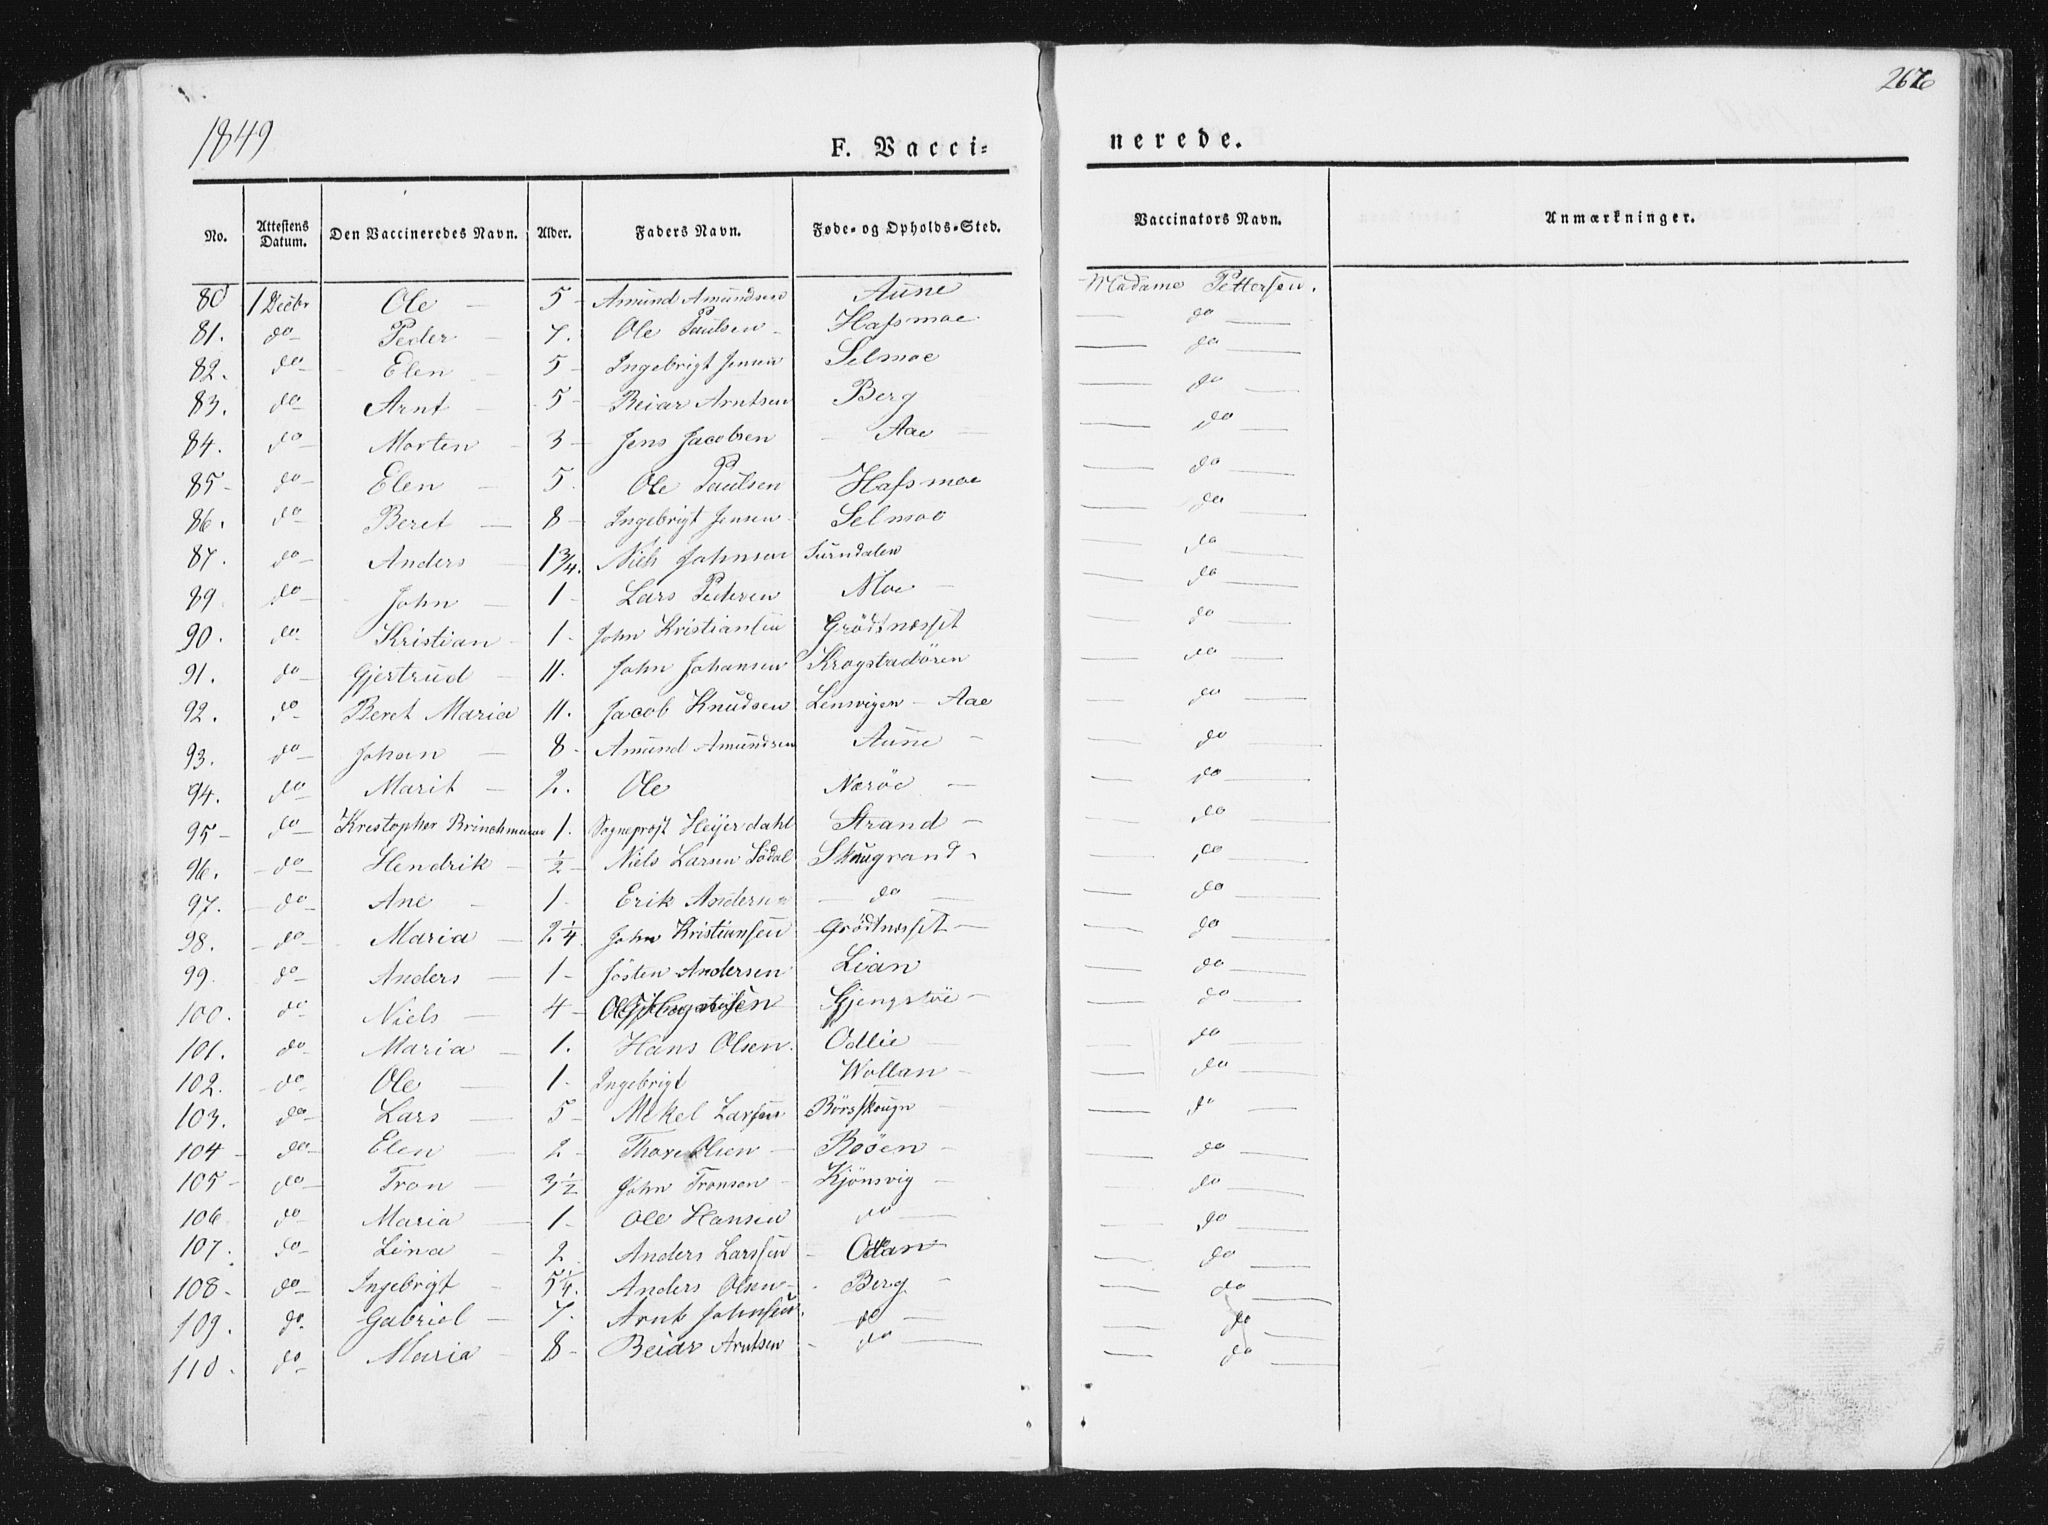 1849
267
F. Vacci=
nerede.
No. Attestens Datum. Den Vaccineredes Navn. Alder. Faders Navn. Føde- og Opholds-Sted. Vaccinators Navn. Anmærkninger.
80 1 Decbr Ole — 5 - Amund Amundsen Aune Madame Pettersen.
81. do Peder — 7. Ole Paulsen - Hafsmoe — do —
82. do Elen - 5 - Ingebrigt Jensen Selmoe — do —
83. do Arnt - 5 - Beiar Arntsen Berg — do —
84. do Morten - 3 - Jens Jacobsen - Aae — do —
85 - do Elen - 5. Ole Paulsen Hafsmoe — do —
86. do Beret — 8 - Ingebrigt Jensen Selmoe — do —
87. do Anders - 1 3/4. Niels Johnsen Surndalen — do —
89 do John — 1 - Lars Pedersen Moe — — do —
90. do Kristian - 1 - John Kristiansen Grödtnæsset — do —
91. do Gjertrud - 11. John Johansen Krogstadören — do —
92. do Beret Maria 11. Jacob Knudsen Lensvigen - Aae — do —
93. do Johan — 8 - Amund Amundsen Aune - — do —
94. do Marit - 2. Ole Næröe — — do —
95 - do Kristopher Brinchmann 1. Sogneprest Heyerdahl Strand - — do —
96. do Hendrik - 1/2 - Niels Larsen Södal Skaugrand - — do —
97. do Ane - 1 - Erik Andersen - do — — do —
98. do Maria — 2 1/4 John Kristiansen Grödtnæsset - — do —
99. do Anders — 1 - Jösten Andersen Lian — do —
100. do Niels — 4 - Gjengstöe - — do —
101. do Maria — 1. Hans Olsen. Odlie — — do —
102. do Ole — 1 - Ingebrigt Wollan - — do —
103. do Lars — 5 - Mekel Larsen Börsskougn - — do —
104 - do Elen — 2 - Thore Olsen - Roöen - — do —
105 - do Tron — 3 1/2 John Tronsen - Kjönsvig - — do —
106 do Maria — 1 - Ole Hansen do — — do —
107. do Lina - 2. Anders Larssen - — do —
108 - do Ingebrigt - 5 1/4. Anders Olsen - Berg - — do —
109. do. Gabriel — 7. Arnt Johnsen. do — — do —
110. do Maria - 8 - Beiar Arntsen - do — — do —